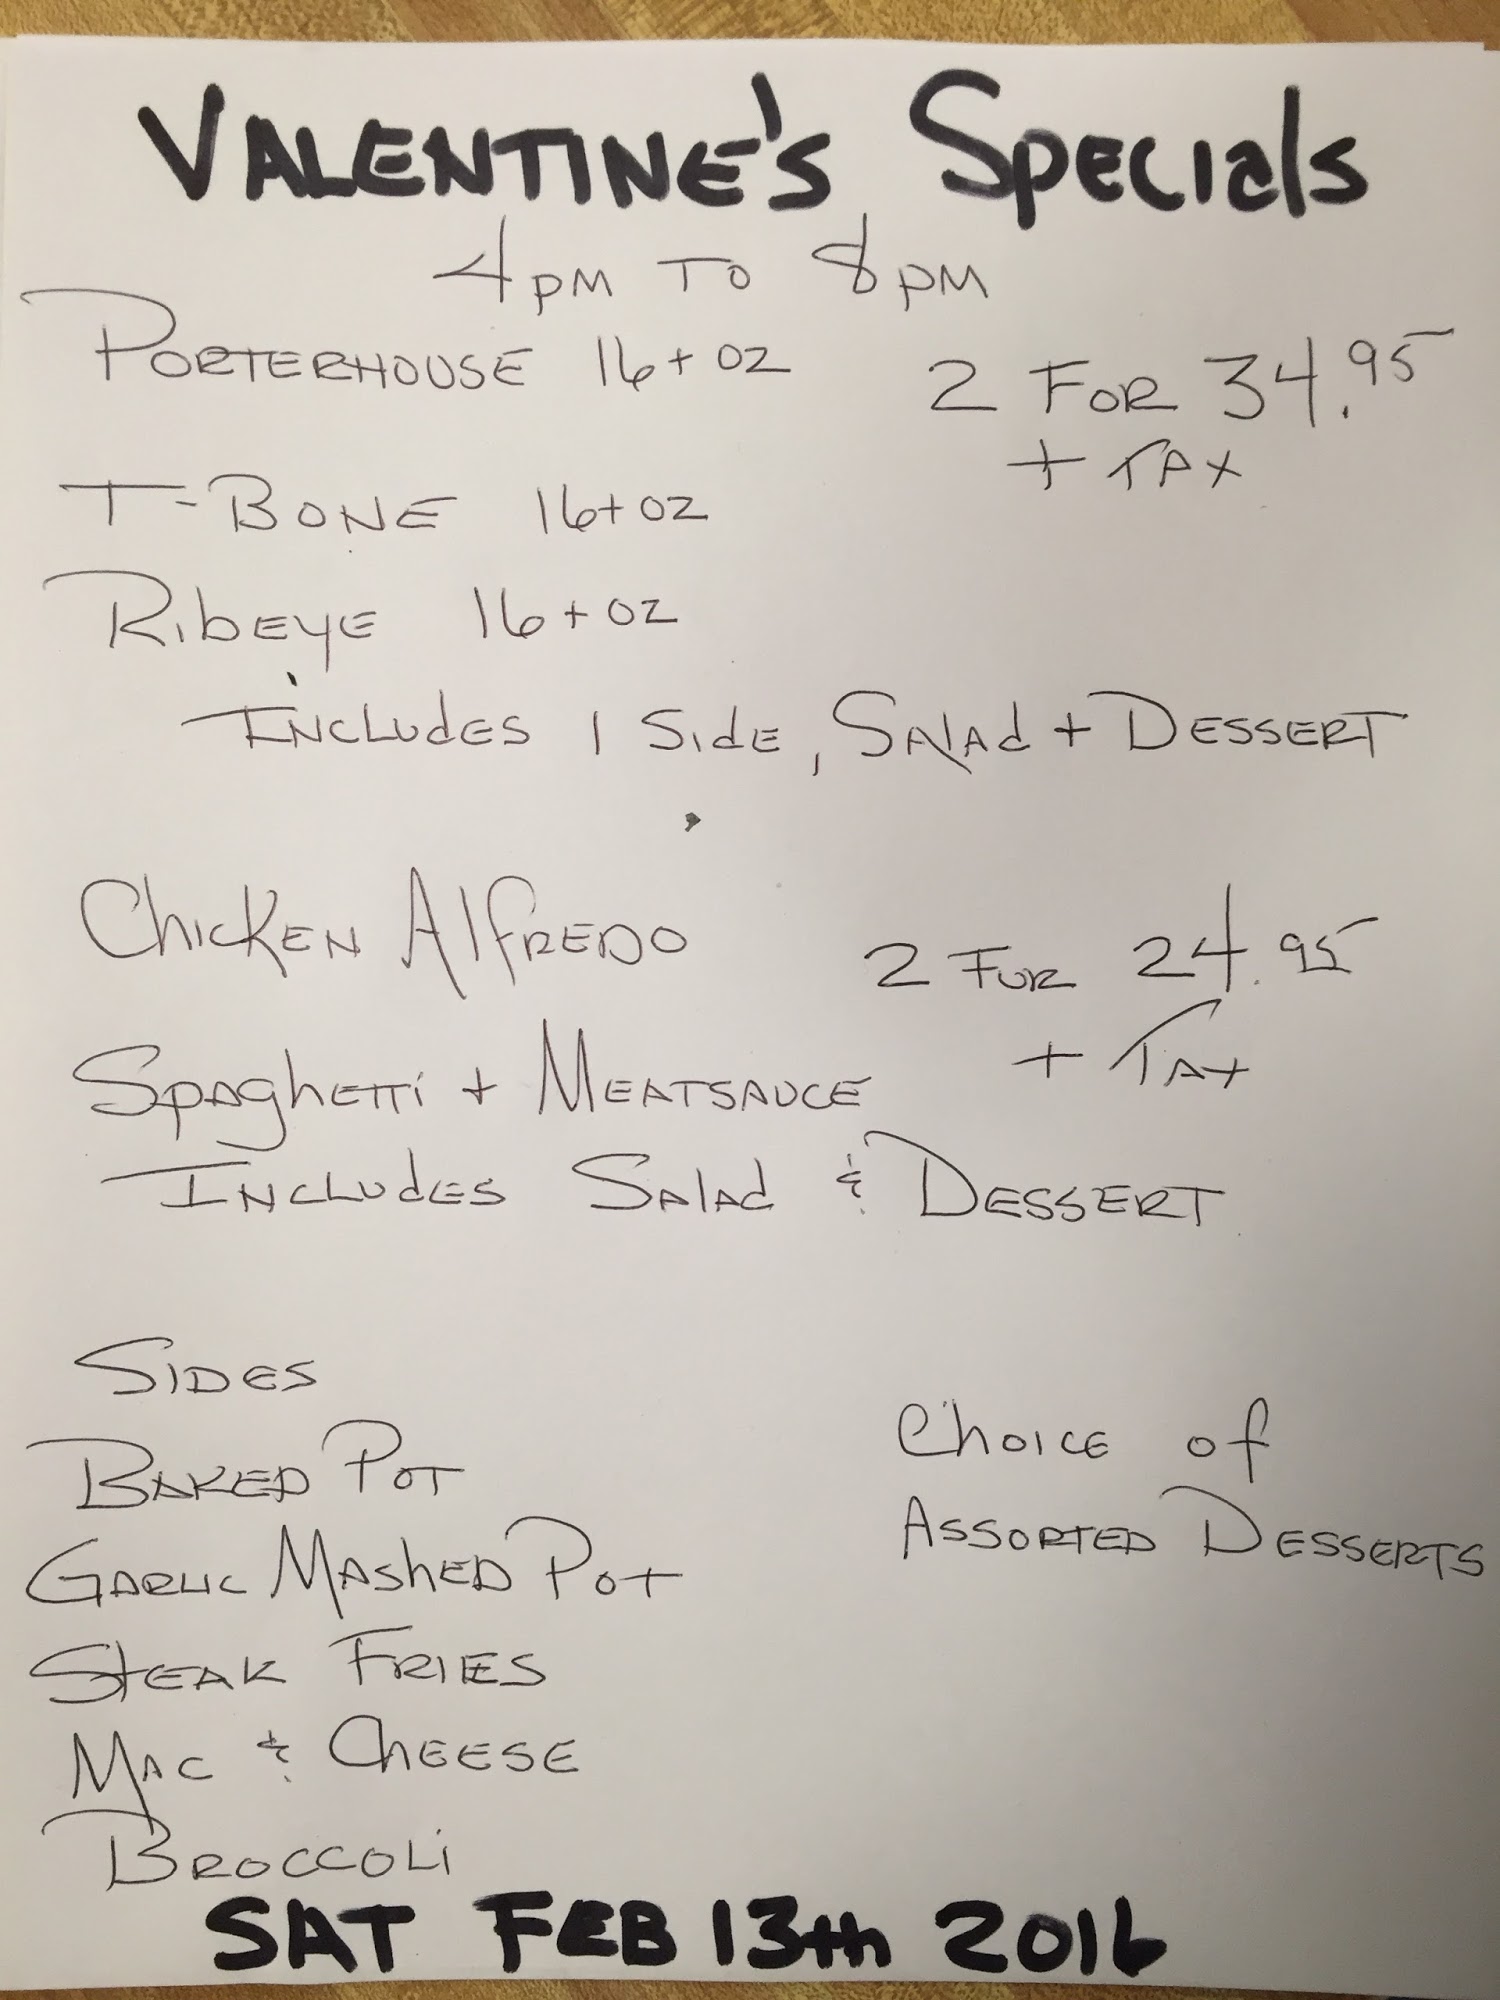 VALENTINE'S SPECIALS
4PM TO 8PM
PORTERHOUSE 16+OZ 2 FOR 34.95
+ TAX
T-BONE 16+OZ
RIBEYE 16+OZ
INCLUDES 1 SIDE, SALAD + DESSERT
CHICKEN ALFREDO 2 FOR 24.95
+ TAX
SPAGHETTI + MEATSAUCE
INCLUDES SALAD & DESSERT
SIDES
BAKED POT
GARLIC MASHED POT
STEAK FRIES
MAC & CHEESE
BROCCOLI
CHOICE OF
ASSORTED DESSERTS
SAT FEB 13th 2016